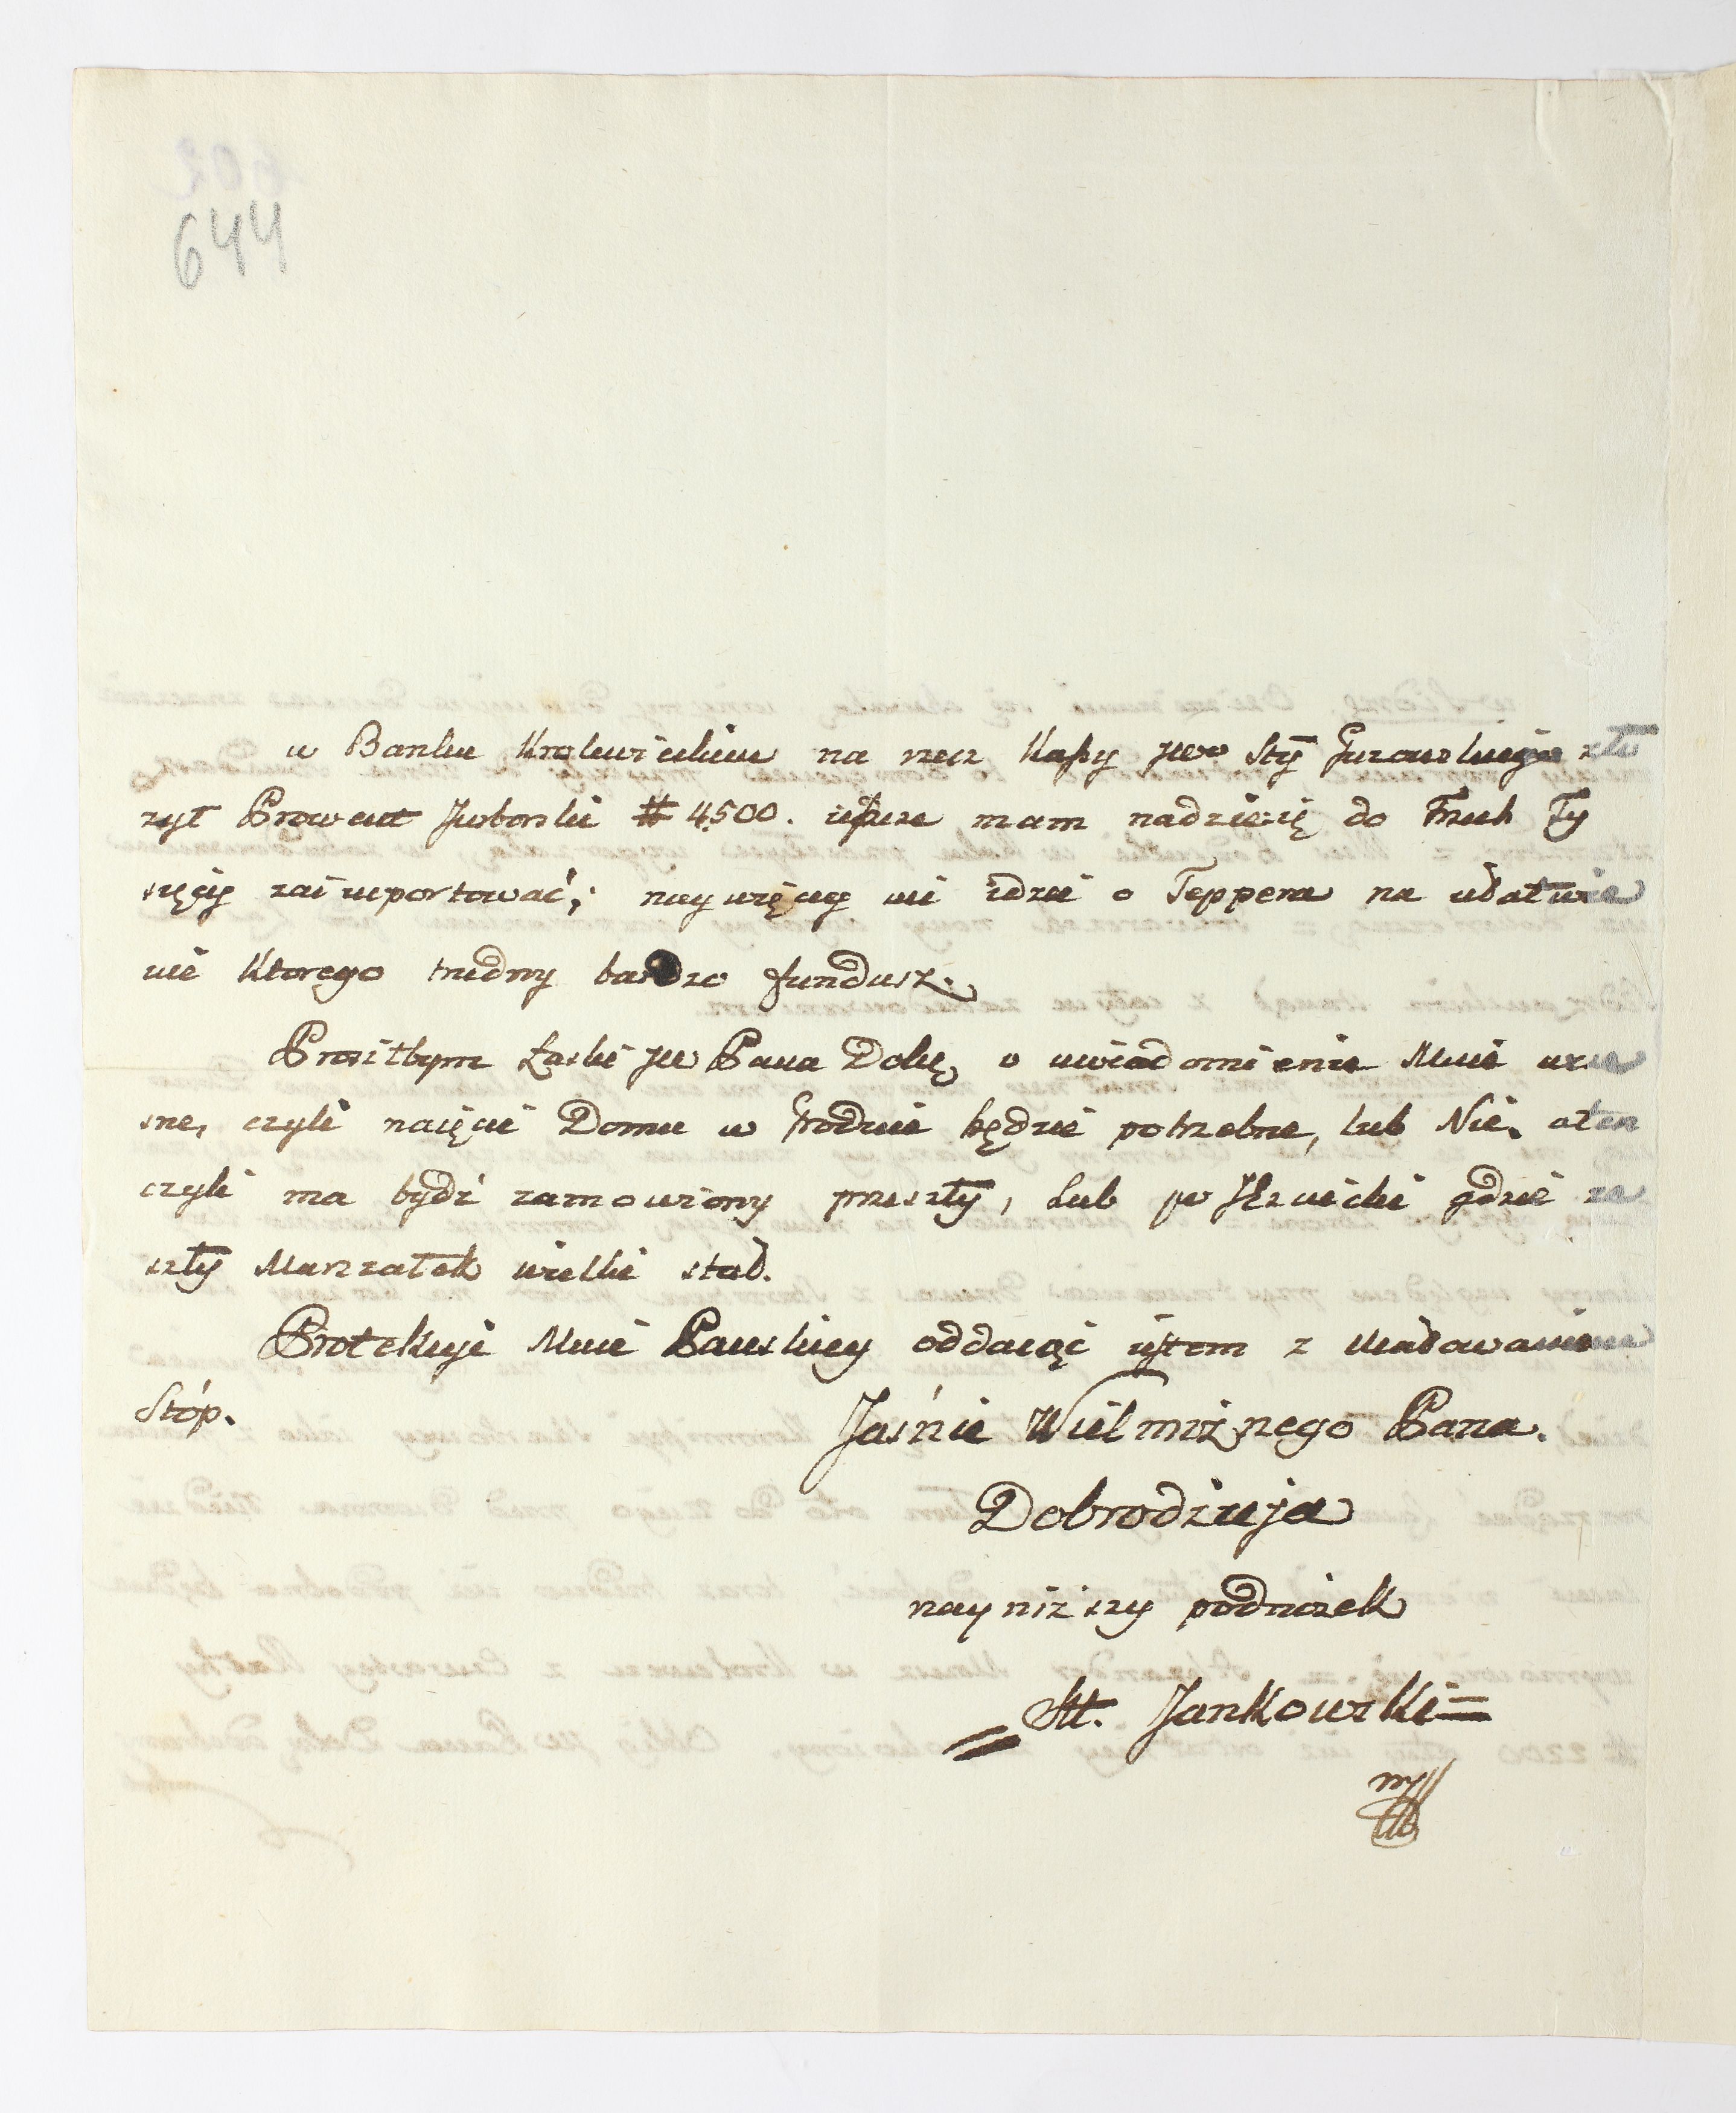 644
w Banku Krolewieckim na rzecz Kassy JWo Stty Gurowskiego zło
zył Prowent Jurborski # 4500. ieszcze mam nadzieię do Trzech Ty
sięcy zaimportować; naywięcey mi idzie o Teppera na ułatwie
nie ktorego trudny bardzo fundusz.
Prosiłbym Łaski JW Pana Dobę o uwiadomienie Mnie wcze
sne, czyli naięcie Domu w Grodnie będzie potrzebne, lub Nie. aten
czyli ma bydź zamowiony przeszły, lub po gdzie ze
szły Marszałek wielki stał.
Protekcyi Mnie Panskiey oddaiąc iestem z Ucałowaniem
Stóp.
Jaśnie Wielmożnego Pana.
Dobrodzieja
nayniższy podnóżek
St. Jankowski